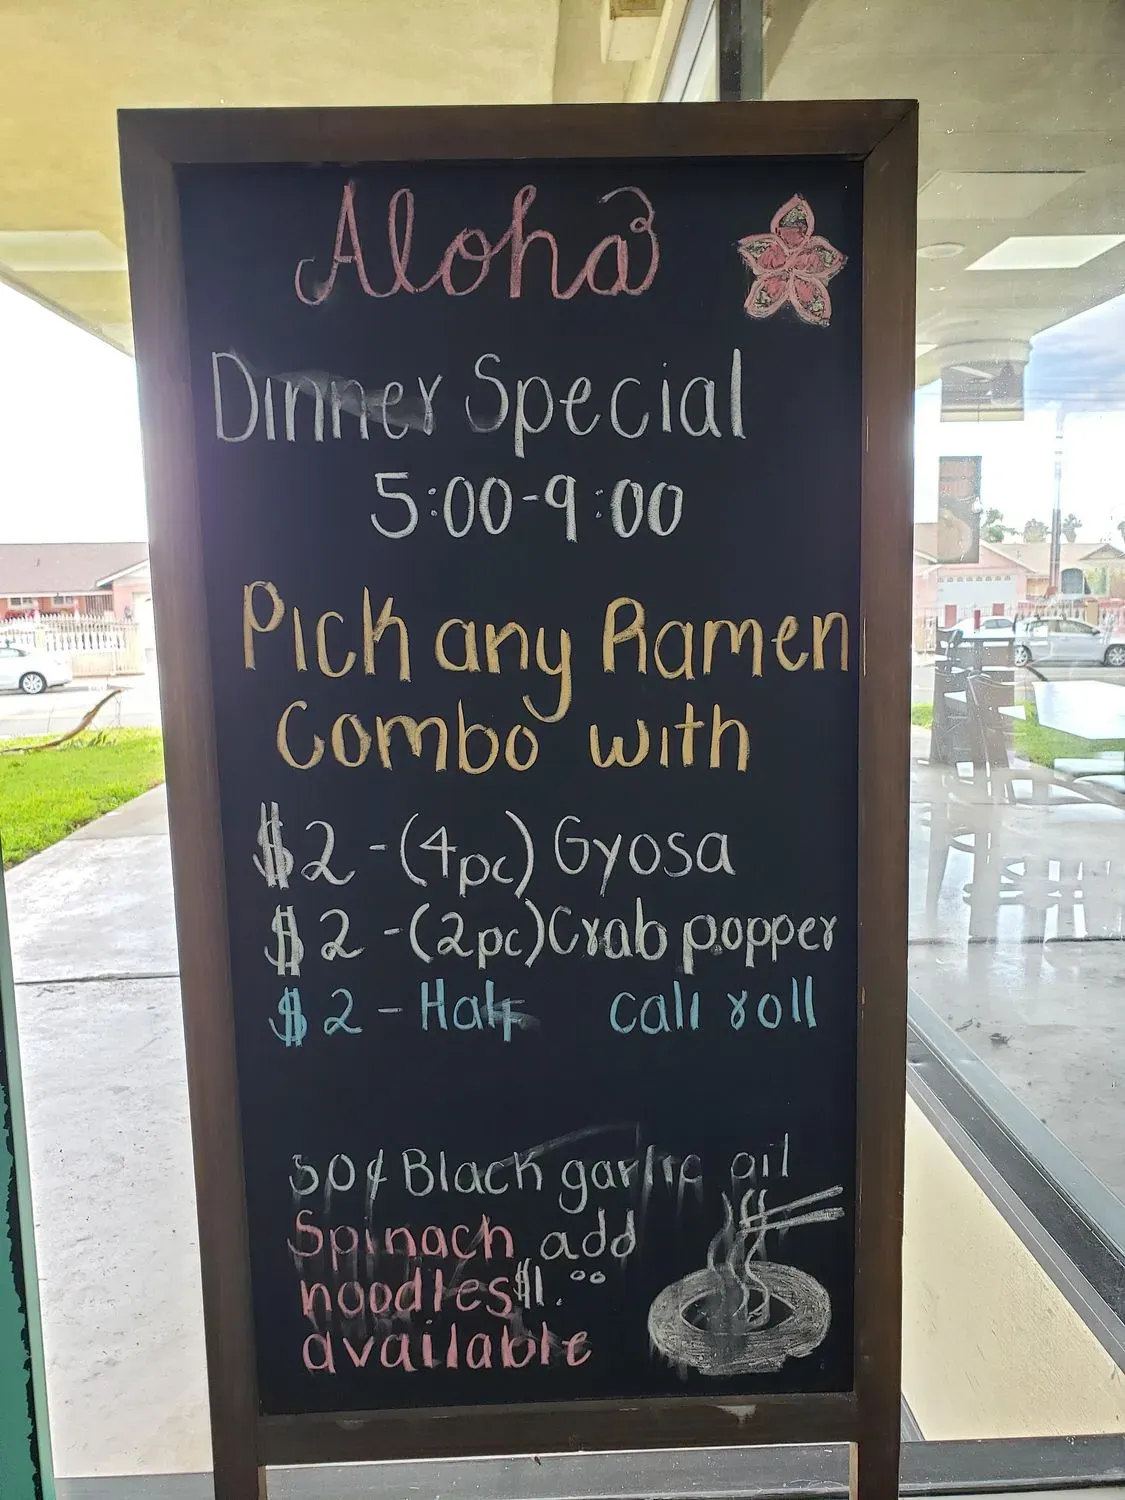 Aloha
Dinner Special
5:00-9:00
Pick any Ramen
Combo with
$2 - (4pc) Gyosa
$2 - (2pc) Crab popper
$2 - Half Cali roll
50¢ Black garlic oil
Spinach add
noodles $1.00
available